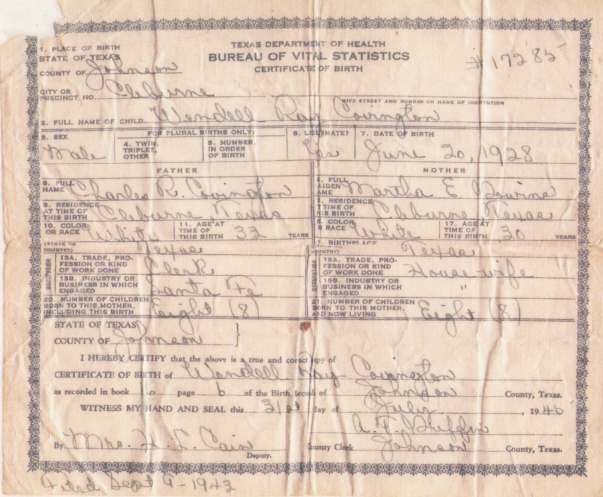 TEXAS DEPARTMENT OF HEALTH
BUREAU OF VITAL STATISTICS
CERTIFICATE OF BIRTH
#17285
1. PLACE OF BIRTH
STATE OF TEXAS
COUNTY OF Johnson
CITY OR PRECINCT NO. Cleburne
GIVE STREET AND NUMBER OR NAME OF INSTITUTION
2. FULL NAME OF CHILD Wendell Ray Covington
3. SEX Male
FOR PLURAL BIRTHS ONLY
4. TWIN, TRIPLET, OTHER
5. NUMBER IN ORDER OF BIRTH
6. LIGITIMATE? Yes
7. DATE OF BIRTH June 20, 1928
FATHER
8. FULL NAME Charles R. Covington
9. RESIDENCE AT TIME OF THIS BIRTH Cleburne, Texas
10. COLOR OR RACE White
11. AGE AT TIME OF THIS BIRTH 33 YEARS
(STATE OR COUNTRY) Texas
13A. TRADE, PROFESSION OR KIND OF WORK DONE Clerk
13B. INDUSTRY OR BUSINESS IN WHICH ENGAGED Santa Fe
20. NUMBER OF CHILDREN BORN TO THIS MOTHER, INCLUDING THIS BIRTH Eight 8
MOTHER
FULL MAIDEN NAME Martha E. Bourne
RESIDENCE AT TIME OF THIS BIRTH Cleburne, Texas
COLOR OR RACE White
17. AGE AT TIME OF THIS BIRTH 30 YEARS
BIRTHPLACE Texas
19A. TRADE, PROFESSION OR KIND OF WORK DONE Housewife
19B. INDUSTRY OR BUSINESS IN WHICH ENGAGED "
21. NUMBER OF CHILDREN BORN TO THIS MOTHER AND NOW LIVING Eight 8
STATE OF TEXAS
COUNTY OF Johnson
I HEREBY CERTIFY that the above is a true and correct copy of
CERTIFICATE OF BIRTH of Wendell Ray Covington
as recorded in book 6 page 6 of the Birth record of Johnson County, Texas.
WITNESS MY HAND AND SEAL this 31st day of July, 1940
A. P. Griffin
By Mrs. H. L. Cain County Clerk Johnson County, Texas.
Deputy.
Filed Sept 9-1942